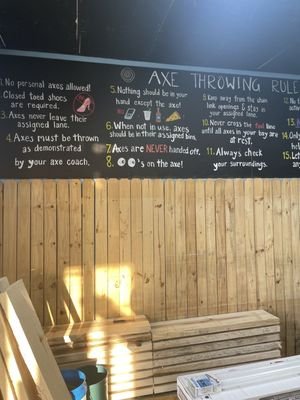 AXE THROWING RULE
1. No personal axes allowed!
2. Closed toed shoes
are required.
3. Axes never leave their
assigned lane.
4. Axes must be thrown
as demonstrated
by your axe coach.
5. Nothing should be in your
hand except the axe.
6. When not in use, axes
should be in their assigned
bins.
7. Axes are NEVER handed off.
8. 's on the axe!
9. Keep away from the chain
link openings & stay in
your assigned lane.
10. Never cross the foul line
until all axes in your bay are
at rest.
11. Always check
your surroundings.
12. No
13.
14. Only
15. Let